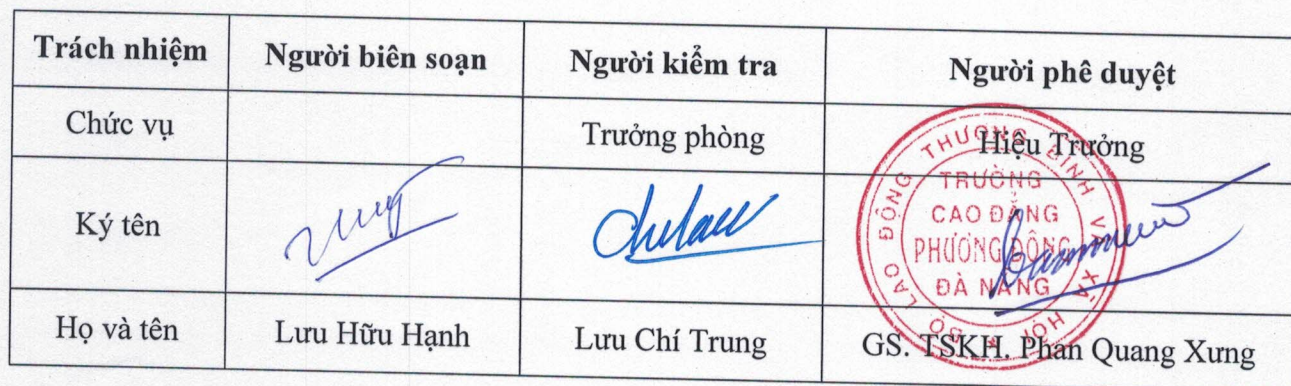 Trách nhiệm Người biên soạn Người kiểm tra Người phê duyệt
Chức vụ Trưởng phòng Hiệu Trưởng
Ký tên
BỘ LAO ĐỘNG THƯƠNG BINH VÀ XÃ HỘI
TRƯỜNG
CAO ĐẲNG
PHƯƠNG ĐÔNG
ĐÀ NẴNG
Họ và tên Lưu Hữu Hạnh Lưu Chí Trung GS. TSKH. Phan Quang Xưng